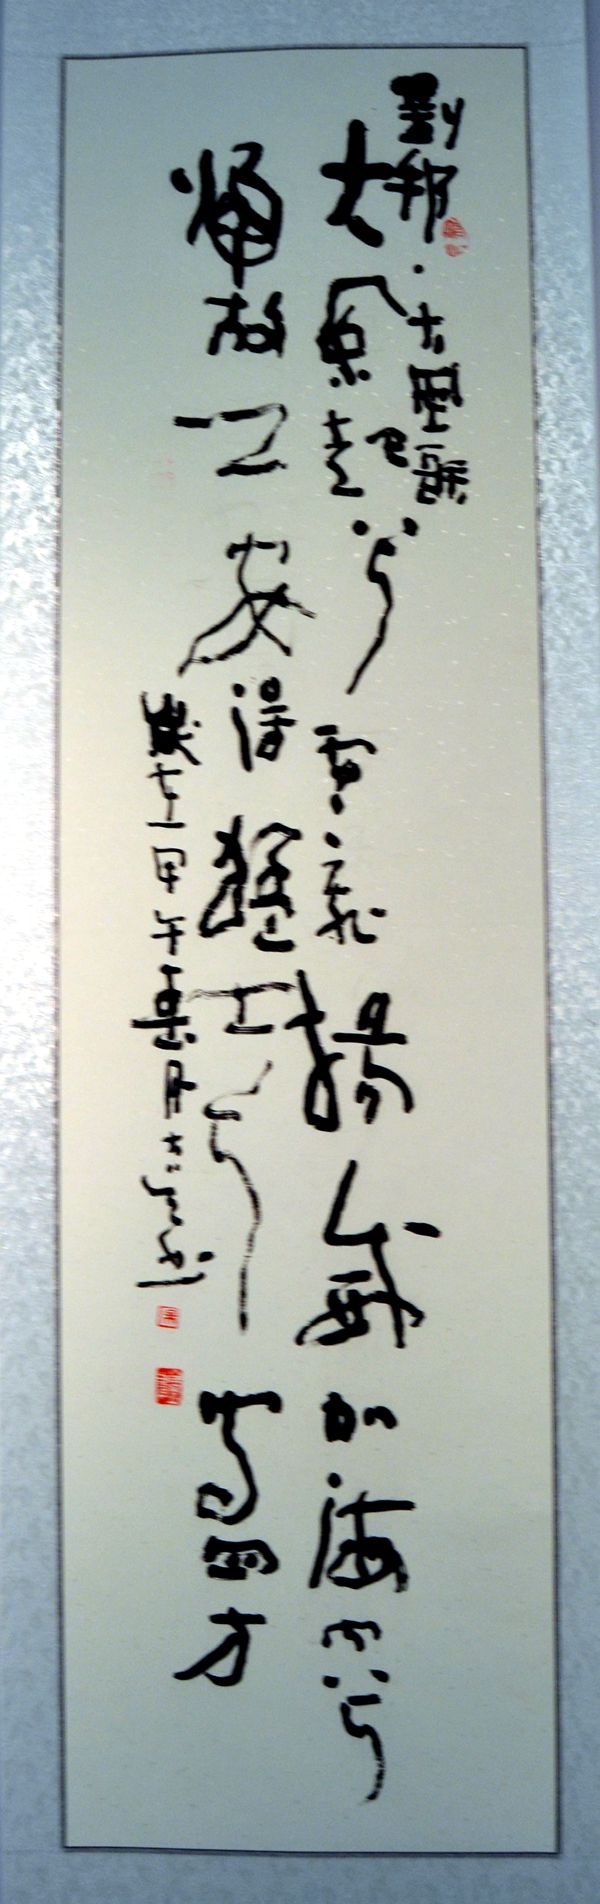 劉邦·大風歌
大風起兮雲飛揚威加海内兮
歸故鄉安得猛士兮守四方
歲在甲午